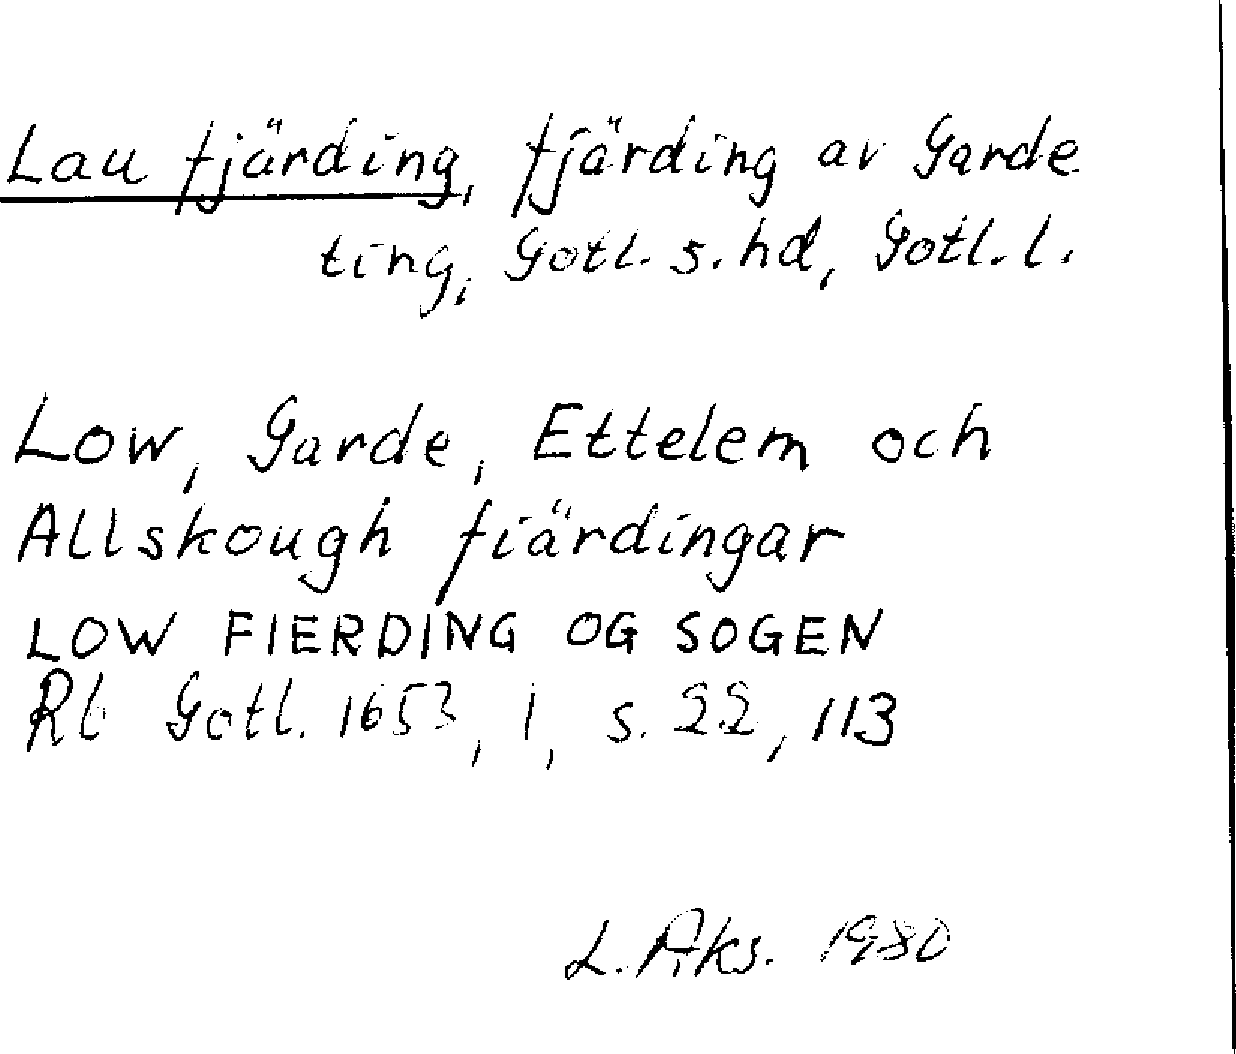 Lau fjärding, fjärding av Garde
ting, Gotl. s. hd, Gotl. l.
Low, Garde, Ettelem och
Allskough fiärdingar
LOW FIERDING OG SOGEN
Rb Gotl. 1653, 1, s. 22, 113
L. Aks. 1980